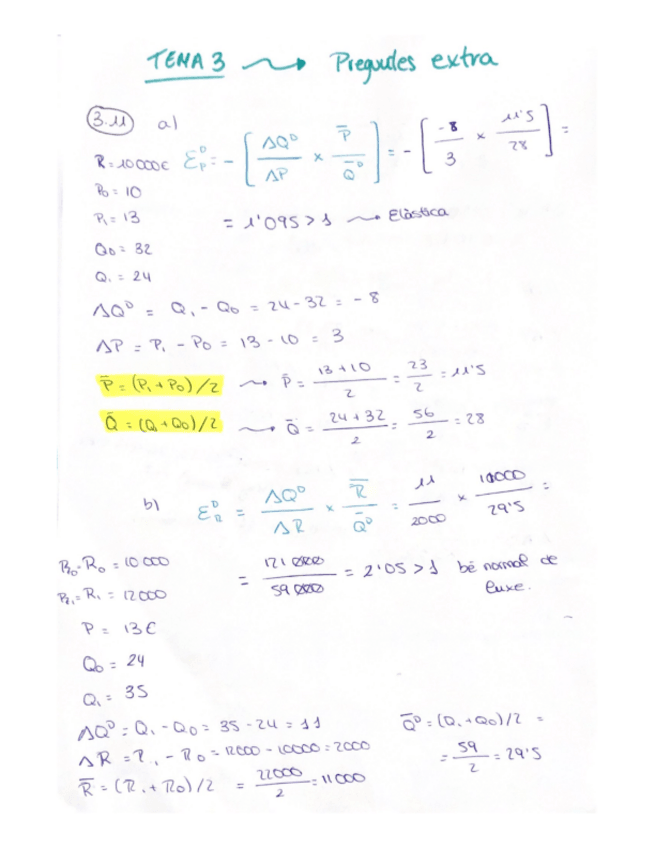 TEMA 3 ⟿ Preguntes extra
3.11 a)
R = 10000€ ε_P^D = - [ ΔQ^D / ΔP × P̄ / Q̄^D ] = - [ -8 / 3 × 11'5 / 28 ] =
P0 = 10
P1 = 13 = 1'095 > 1 ⟿ Elàstica
Q0 = 32
Q1 = 24
ΔQ^D = Q1 - Q0 = 24 - 32 = -8
ΔP = P1 - P0 = 13 - 10 = 3
P̄ = (P1 + P0)/2 ⟿ P̄ = 13 + 10 / 2 = 23 / 2 = 11'5
Q̄ = (Q1 + Q0)/2 ⟿ Q̄ = 24 + 32 / 2 = 56 / 2 = 28
b) ε_R^D = ΔQ^D / ΔR × R̄ / Q̄^D = 11 / 2000 × 11000 / 29'5 =
R0 = 10000
= 121000 / 59000 = 2'05 > 1 bé normal de luxe.
R1 = 12000
P = 13€
Q0 = 24
Q1 = 35
ΔQ^D = Q1 - Q0 = 35 - 24 = 11 Q̄^D = (Q1 + Q0)/2 =
ΔR = R1 - R0 = 12000 - 10000 = 2000 = 59 / 2 = 29'5
R̄ = (R1 + R0)/2 = 22000 / 2 = 11000